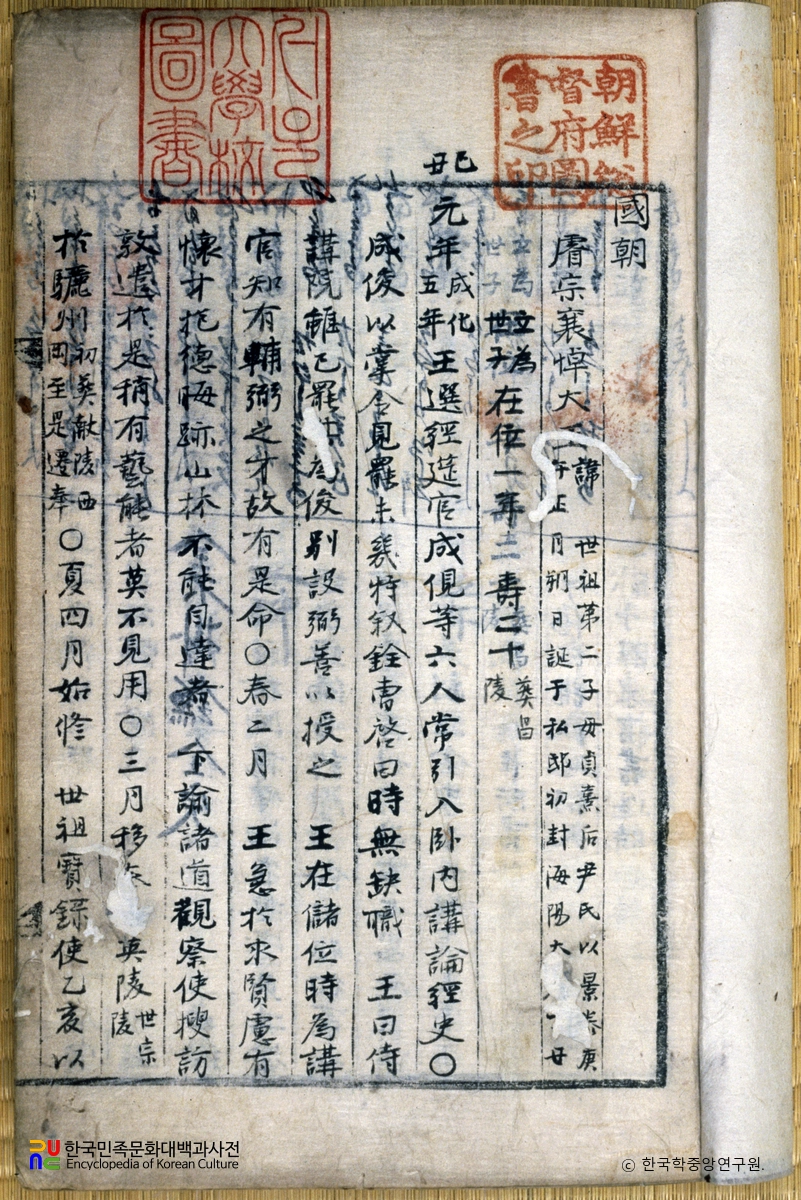 國朝
睿宗襄悼大王諱 世祖第二子母貞熹后尹氏以景泰庚
午正月朔日誕于私邸初封海陽大 丁丑
立為
世子在位一年壽二十葬昌
陵
己丑
元年成化
五年王選經筵官成俔等六人常引入臥內講論經史〇
成俊以 見罷未幾特叙銓曹啓曰時無缺職 王曰侍
講院雖已罷 為俊別設弼善以授之 王在儲位時為講
官知有輔弼之才故有是命〇春二月 王急於求賢慮有
懷才抱德晦跡山林不能自達者下諭諸道觀察使搜訪
敦遣於是稍有藝能者莫不見用〇三月移 英陵世宗
陵
於驪州初葬獻陵西
岡至是遷奉〇夏四月始修 世祖實錄使乙亥以
朝鮮總
督府圖
書之印
大學校
圖書
한국민족문화대백과사전
Encyclopedia of Korean Culture
© 한국학중앙연구원.